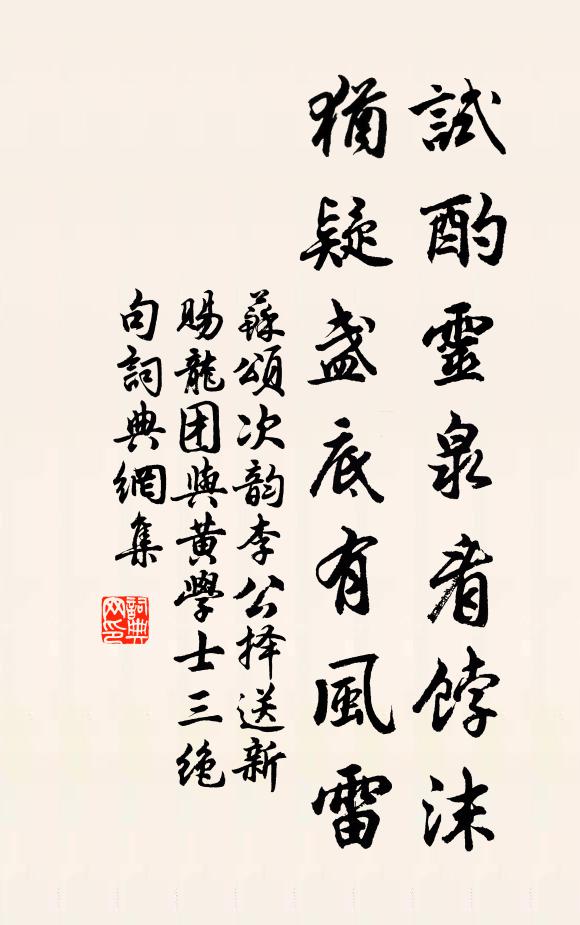 試酌靈泉看餑沫
猶疑盏底有風雷
蘇頌次韵李公择送新
賜龍团與黄學士三絶
句詞典網集
詞典网印